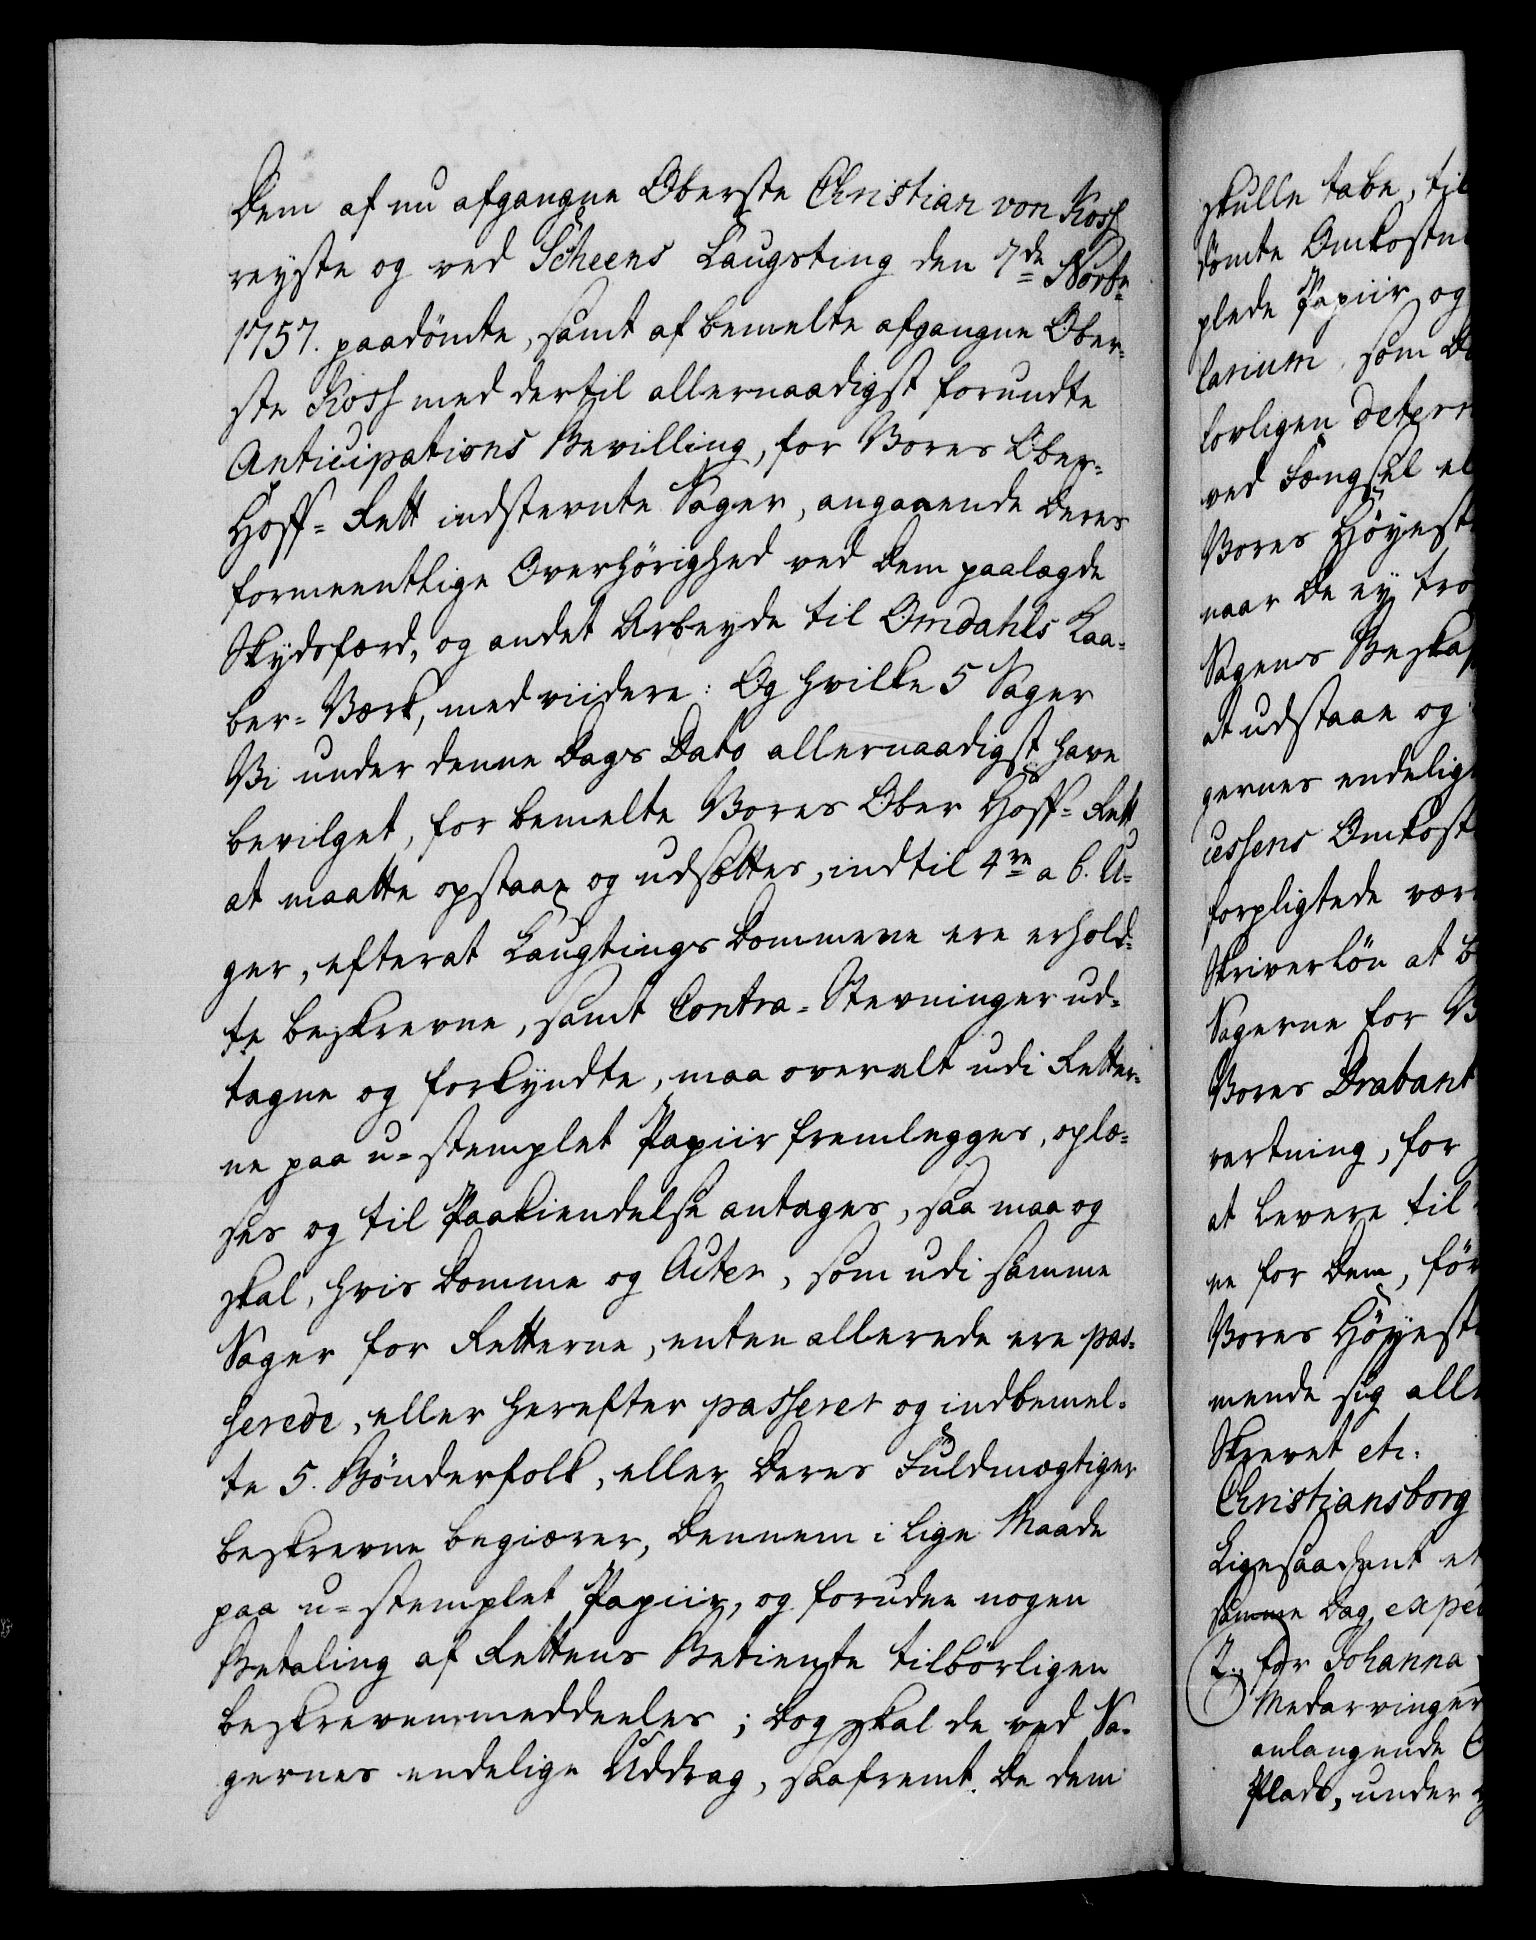 Dem af nu afgangne Oberste Christian von Koss
reyste og ved Scheens Laugsting den 7de Novbr.
1757. paadömte, samt af bemelte afgangne Ober-
ste Koss med dertil allernaadigst forundte
Anticipations Bevilling, for Vores Ober-
Hoff-Rett indstevnte Sager, angaaende deres
formeentlige Overhörighed ved dem paalagde
Skydsferd, og andet Arbeyde til Omdahls Kaa-
ber-Værk, med viidere: Og hvilke 5 Sager
Vi under denne Dags Dato allernaadigst have
bevilget, for bemelte Vores Ober Hoff-Rett
at maatte opstaae og udsættes, indtil 4re a 6. U-
ger, efterat Laugtings Dommene ere erhold-
te beskrevne, samt Contra-Stevninger ud-
tagne og forkyndte, maa overalt udi Retter-
ne paa u-stemplet Papiir fremlegges, oplæ-
ses og til Paakiendelse antages, saa maa og
skal, hvis Domme og Acter, som udi samme
Sager for Retterne, enten allerede ere pas-
serede, eller herefter passerer og indbemel-
te 5. Bönderfolk, eller deres Fuldmægtiger
beskrevne begiærer, dennem i lige Maade
paa u-stemplet Papiir, og foruden nogen
Betaling af Rettens Betiente tilbörligen
beskreven meddeeles; dog skal de ved Sa-
gernes endelige Uddrag, saafremt de dem
skulle tabe, til
dömte Omkostn
plede Papiir og
larium, som
forligen determ
ved Fængsel el
Vores Höyest
naar de ey tro
Sagens Beska
at udstaae og
gernes endelig
cessens Omkost
forpligtede vær
Skriverlön at b
Sagerne for V
Vores Drabant
vartning, for
at levere til
ne for dem, för
Vores Höyest
mende sig all
Skrevet etc.
Christiansborg
Ligesaadant et
samme Dag exped
2. for Johanna
Medarvinger
anlangende
Plads, under